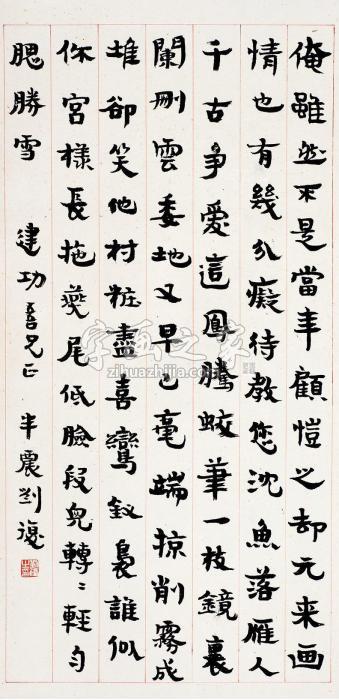 俺雖然不是當年顧愷之却元来画
情也有幾分癡待教您沈魚落雁人
千古爭愛這鳳騰蛟筆一枝鏡裏
闌刪雲委地又早已毫端掠削霧成
堆卻笑他村粧盡喜鸞釵裊誰似
你宮樣長拖燕尾低臉段兒轉〻輕勻
腮勝雪 建功吾兄正 半農劉復
字画之家
zihuazhijia.com